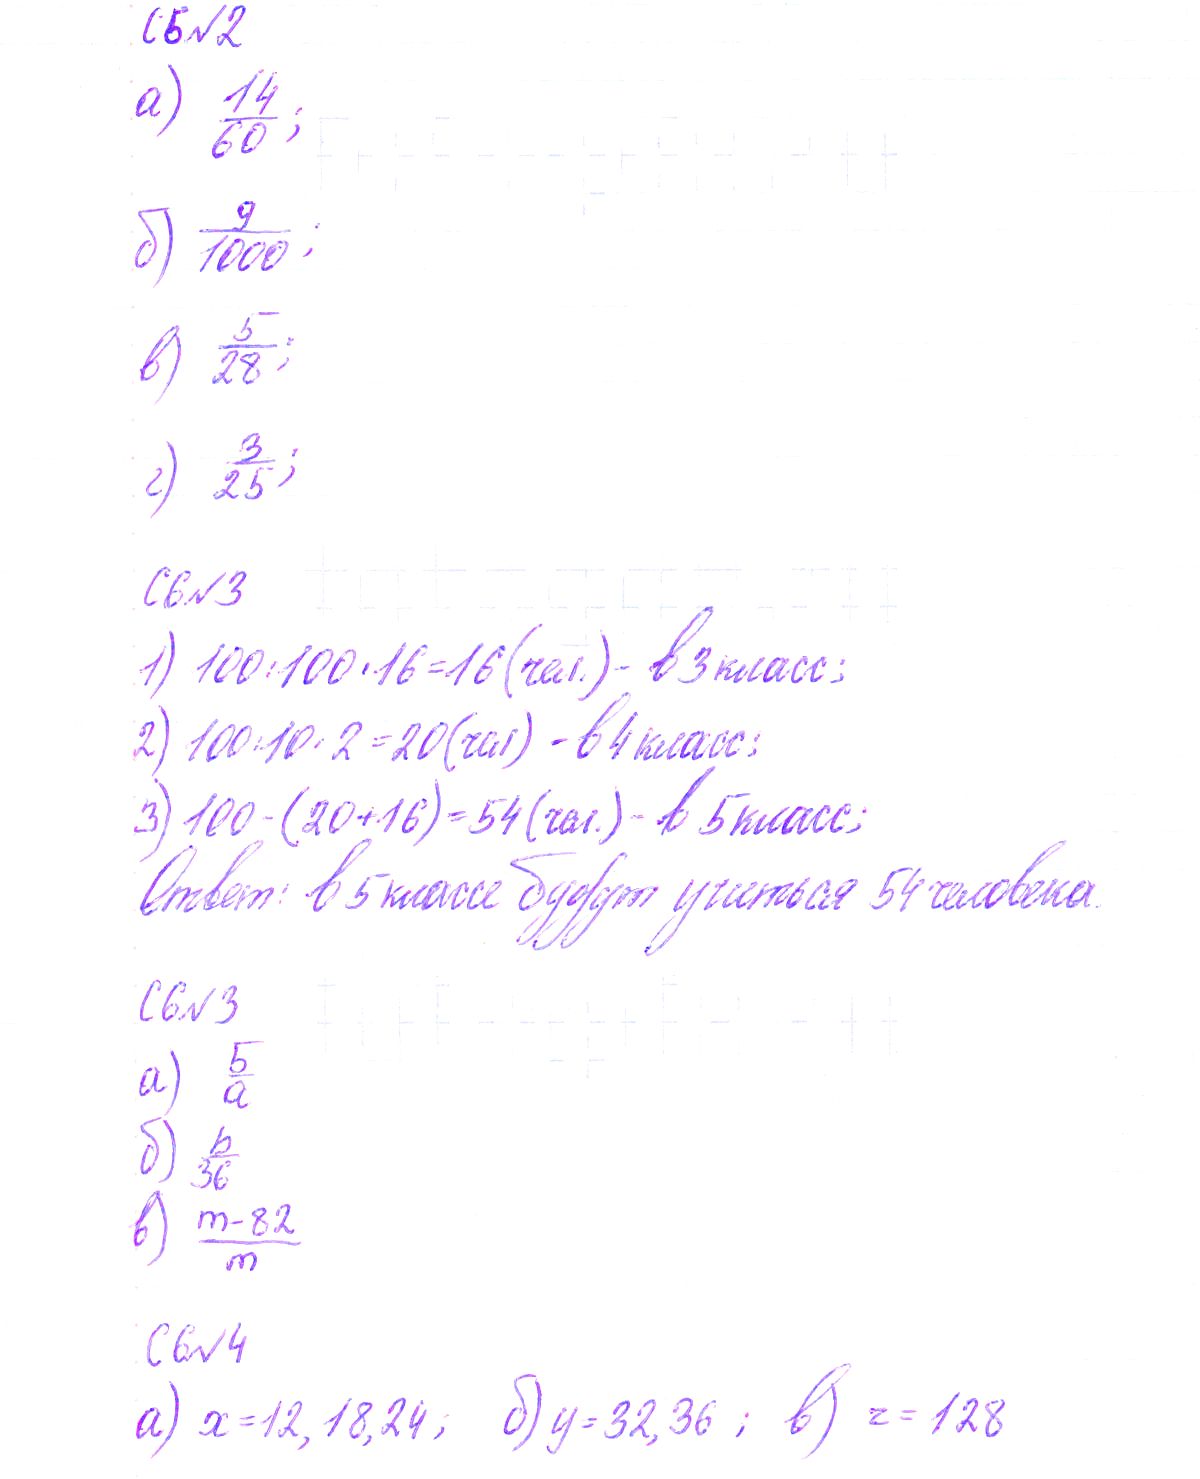 С5№2
а) 14/60;
б) 9/1000;
в) 5/28;
г) 3/25;
С6№3
1) 100:100·16=16(чел.)- в 3 класс;
2) 100:10·2=20(чел) - в 4 класс;
3) 100-(20+16)=54(чел.)- в 5 класс;
Ответ: в 5 классе будут учиться 54 человека.
С6№3
а) 5/a
б) b/36
в) m-82/m
С6№4
а) x=12, 18, 24; б) y=32, 36; в) z=128